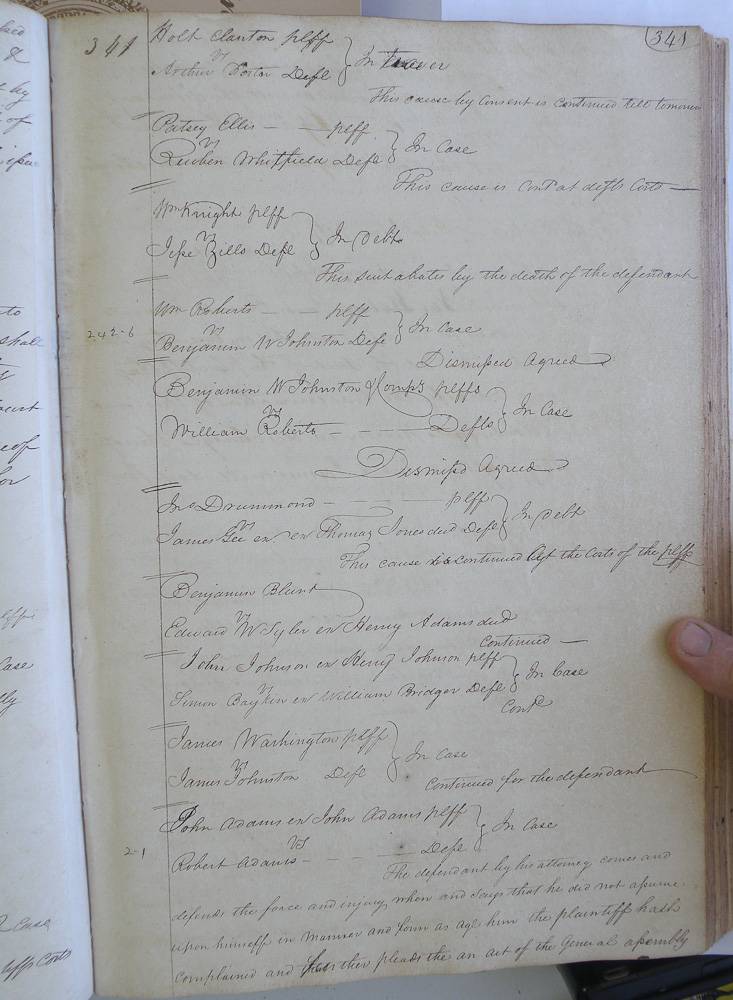 341
341
Holt Clanton plff
vs
Arthur Foster Deft
In Traver
This cause by Consent is continued till tomorrow
Patsey Ellis — — plff
vs
Reuben Whitfield Deft
In Case
This cause is Contd at defts Costs —
Wm Knight plff
vs
Jesse Zills Deft
In Debt
This suit abates by the death of the defendant
Wm Roberts — — plff
vs
242-6
Benjamin W Johnston Deft
In Case
Dismissed Agreed
Benjamin W Johnston & Comp's plffs
vs
William Roberts — — Defts
In Case
Dismissd Agreed
Jno Drummond — — — plff
vs
James Gee ex ex Thomas Jones decd Deft
In Debt
This cause is continued at the Costs of the plff
Benjamin Blunt
vs
Edward W Tyler ex Henry Adams decd
Continued —
John Johnson ex Henry Johnson plff
vs
Simon Boykin ex William Bridger Deft
In Case
Contd
James Washington plff
vs
James Johnston Deft
In Case
Continued for the defendant
John Adams ex John Adams plff
vs
2-1
Robert Adams — — — Deft
In Case
The defendant by his attorney comes and
defends the force and injury when and says that he did not assume
upon himself in manner and form as agt him the plaintiff hath
complained and further pleads the an act of the General assembly
case
tiffs Costs
Case
shall
to
of
by